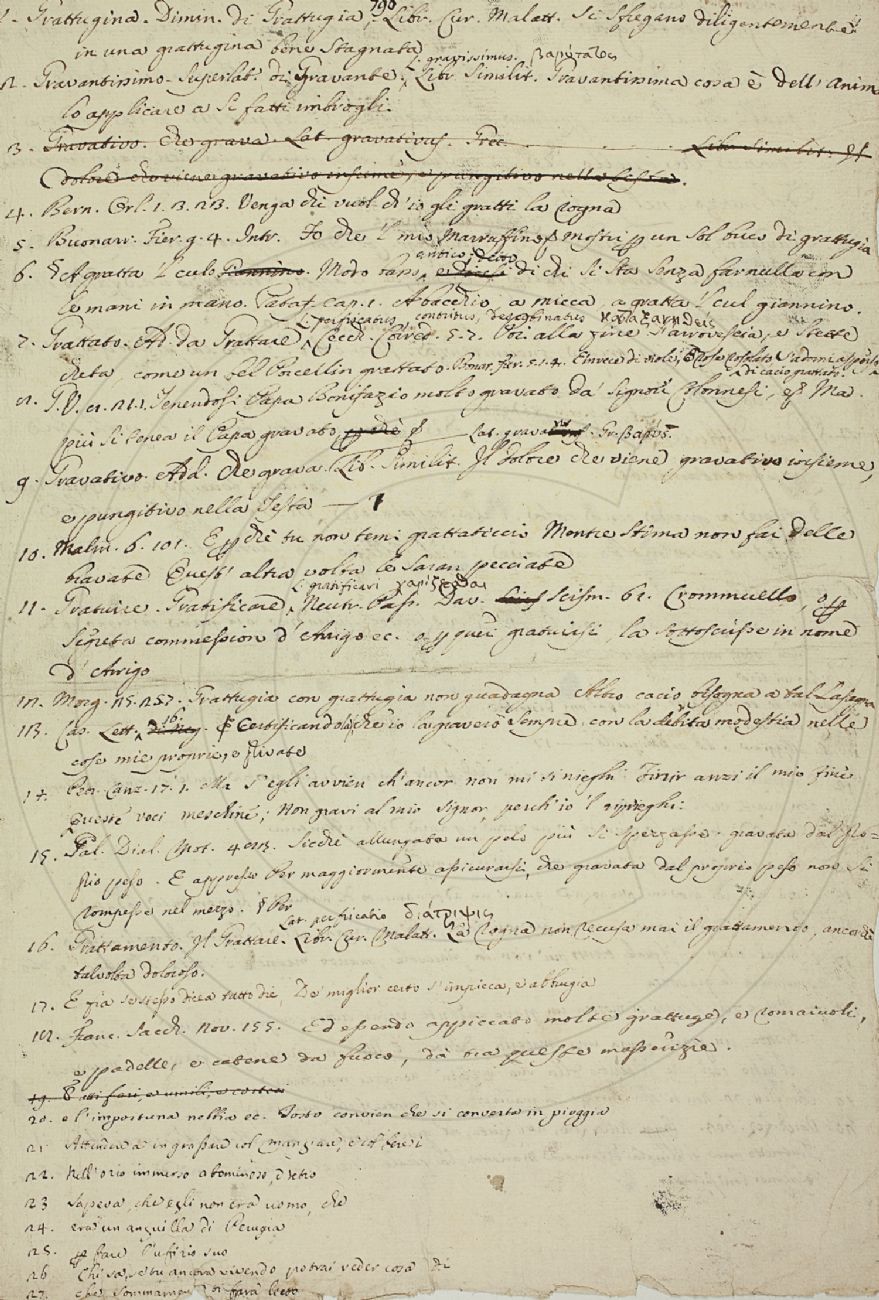 1. Grattugina. Dimin. di Grattugia, Libr. Cur. Malatt. Si sfregano diligentemente
790
in una grattugina bene stagnata
L. gravissimus. βαρύτατος
2. Gravantissimo. Superlat. di Gravante. Libr. Similit. Gravantissima cosa è dell' anim
lo applicare a si fatti imbrogli.
3. Gravativo. che grava. Lat. gravativus. Grec. Libr. Similit. Il
dolore che viene gravativo insieme, e pungitivo nella testa.
4. Bern. Orl. 1. 13. 23. Venga chi vuol ch'io gli gratti la rogna
5. Buonarr. Fier. 9. 4. Intr. Io che 'l mio Marraffino mostri un sol buco di grattugia
antico; detto
6. A gratta 'l culo Giannino. Modo di chi si sta senza far nulla con
le mani in mano. Pataff. cap. 1. A bacchio, a micca, a gratta 'l cul giannino.
L. perfricatus, contritus,
7. Grattato. Ad. da Grattare. Cecch. 5. 7. Poi alla fine s'arrovescia, e stette
cheta, come un bel Porcellin grattato. Buonar. Fier.
di cacio grattato
8. G. V. 8. 21. 1. Tenendosi Papa Bonifazio molto gravato da' signori Colonnesi, Ma
più si tenea il Papa gravato, Lat. Gr. βαρύς.
9. Gravativo. Add. Che grava. Lib. Similit. Il dolore che viene gravativo insieme,
e pungitivo nella Testa
10. Malm. 6. 101. E perchè tu non temi grattaticcio Mentre stima non fai delle
bravate Quest' altra volta le saran pecciate
L. gratificari χαρίζεσθαι
11. Gratuire. Gratificare, Neutr. Pass. Dav. Scism. 62. Crommuello, o per
segreta commession d'Arrigo ec. o per quei gratuirsi, la sottoscrisse in nome
d'Arrigo
12. Morg. 25. 257. Grattugia con grattugia non guadagna Altro cacio bisogna a tal lasagna
13. Cas. Lett. 16. Certificandola che io la graverò sempre con la debita modestia nelle
cose mie proprie, e private
14. Petr. Canz. 17. 1. Ma s'egli avvien ch'ancor non mi si nieghi Finir anzi il mio fine
Queste voci meschine; Non gravi al mio signor, perch'io 'l riprieghi:
15. Gal. Dial. Mot. Sicchè allungata un pelo più si spezzasse gravata dal pro-
prio peso. E appresso Per maggiormente assicurarsi, che gravata dal proprio peso non si
rompesse nel mezzo.
Lat. perfricatio διάτριψις
16. Grattamento. Il Grattare. Libr. Cur. Malatt. La rogna non recusa mai il grattamento, ancorchè
talvolta doloroso.
17. E fra se stesso dicea tutto dì, De' miglior certo s'impicca, e abbrugia
18. Franc. Sacch. Nov. 155. Ed essendo appiccato molte grattuge, e romaiuoli,
e padelle, e catene da fuoco, dà tra queste masserizie.
19. Atti feri, e umili, e cortesi
20. e l'importuna nebbia ec. Tosto convien che si converta in pioggia
21 Attinsi a ingrassar col mangiare, e col bere
22. Nell'ozio immerso abominoso, e tetro
23 Sapeva, che egli non era uomo, che
24. era un anguilla di Perugia
25. per fare l'uffizio suo
26 Chi sa, se tu ancora vivendo potrai veder cosa di
27. che sommamente ti sarà